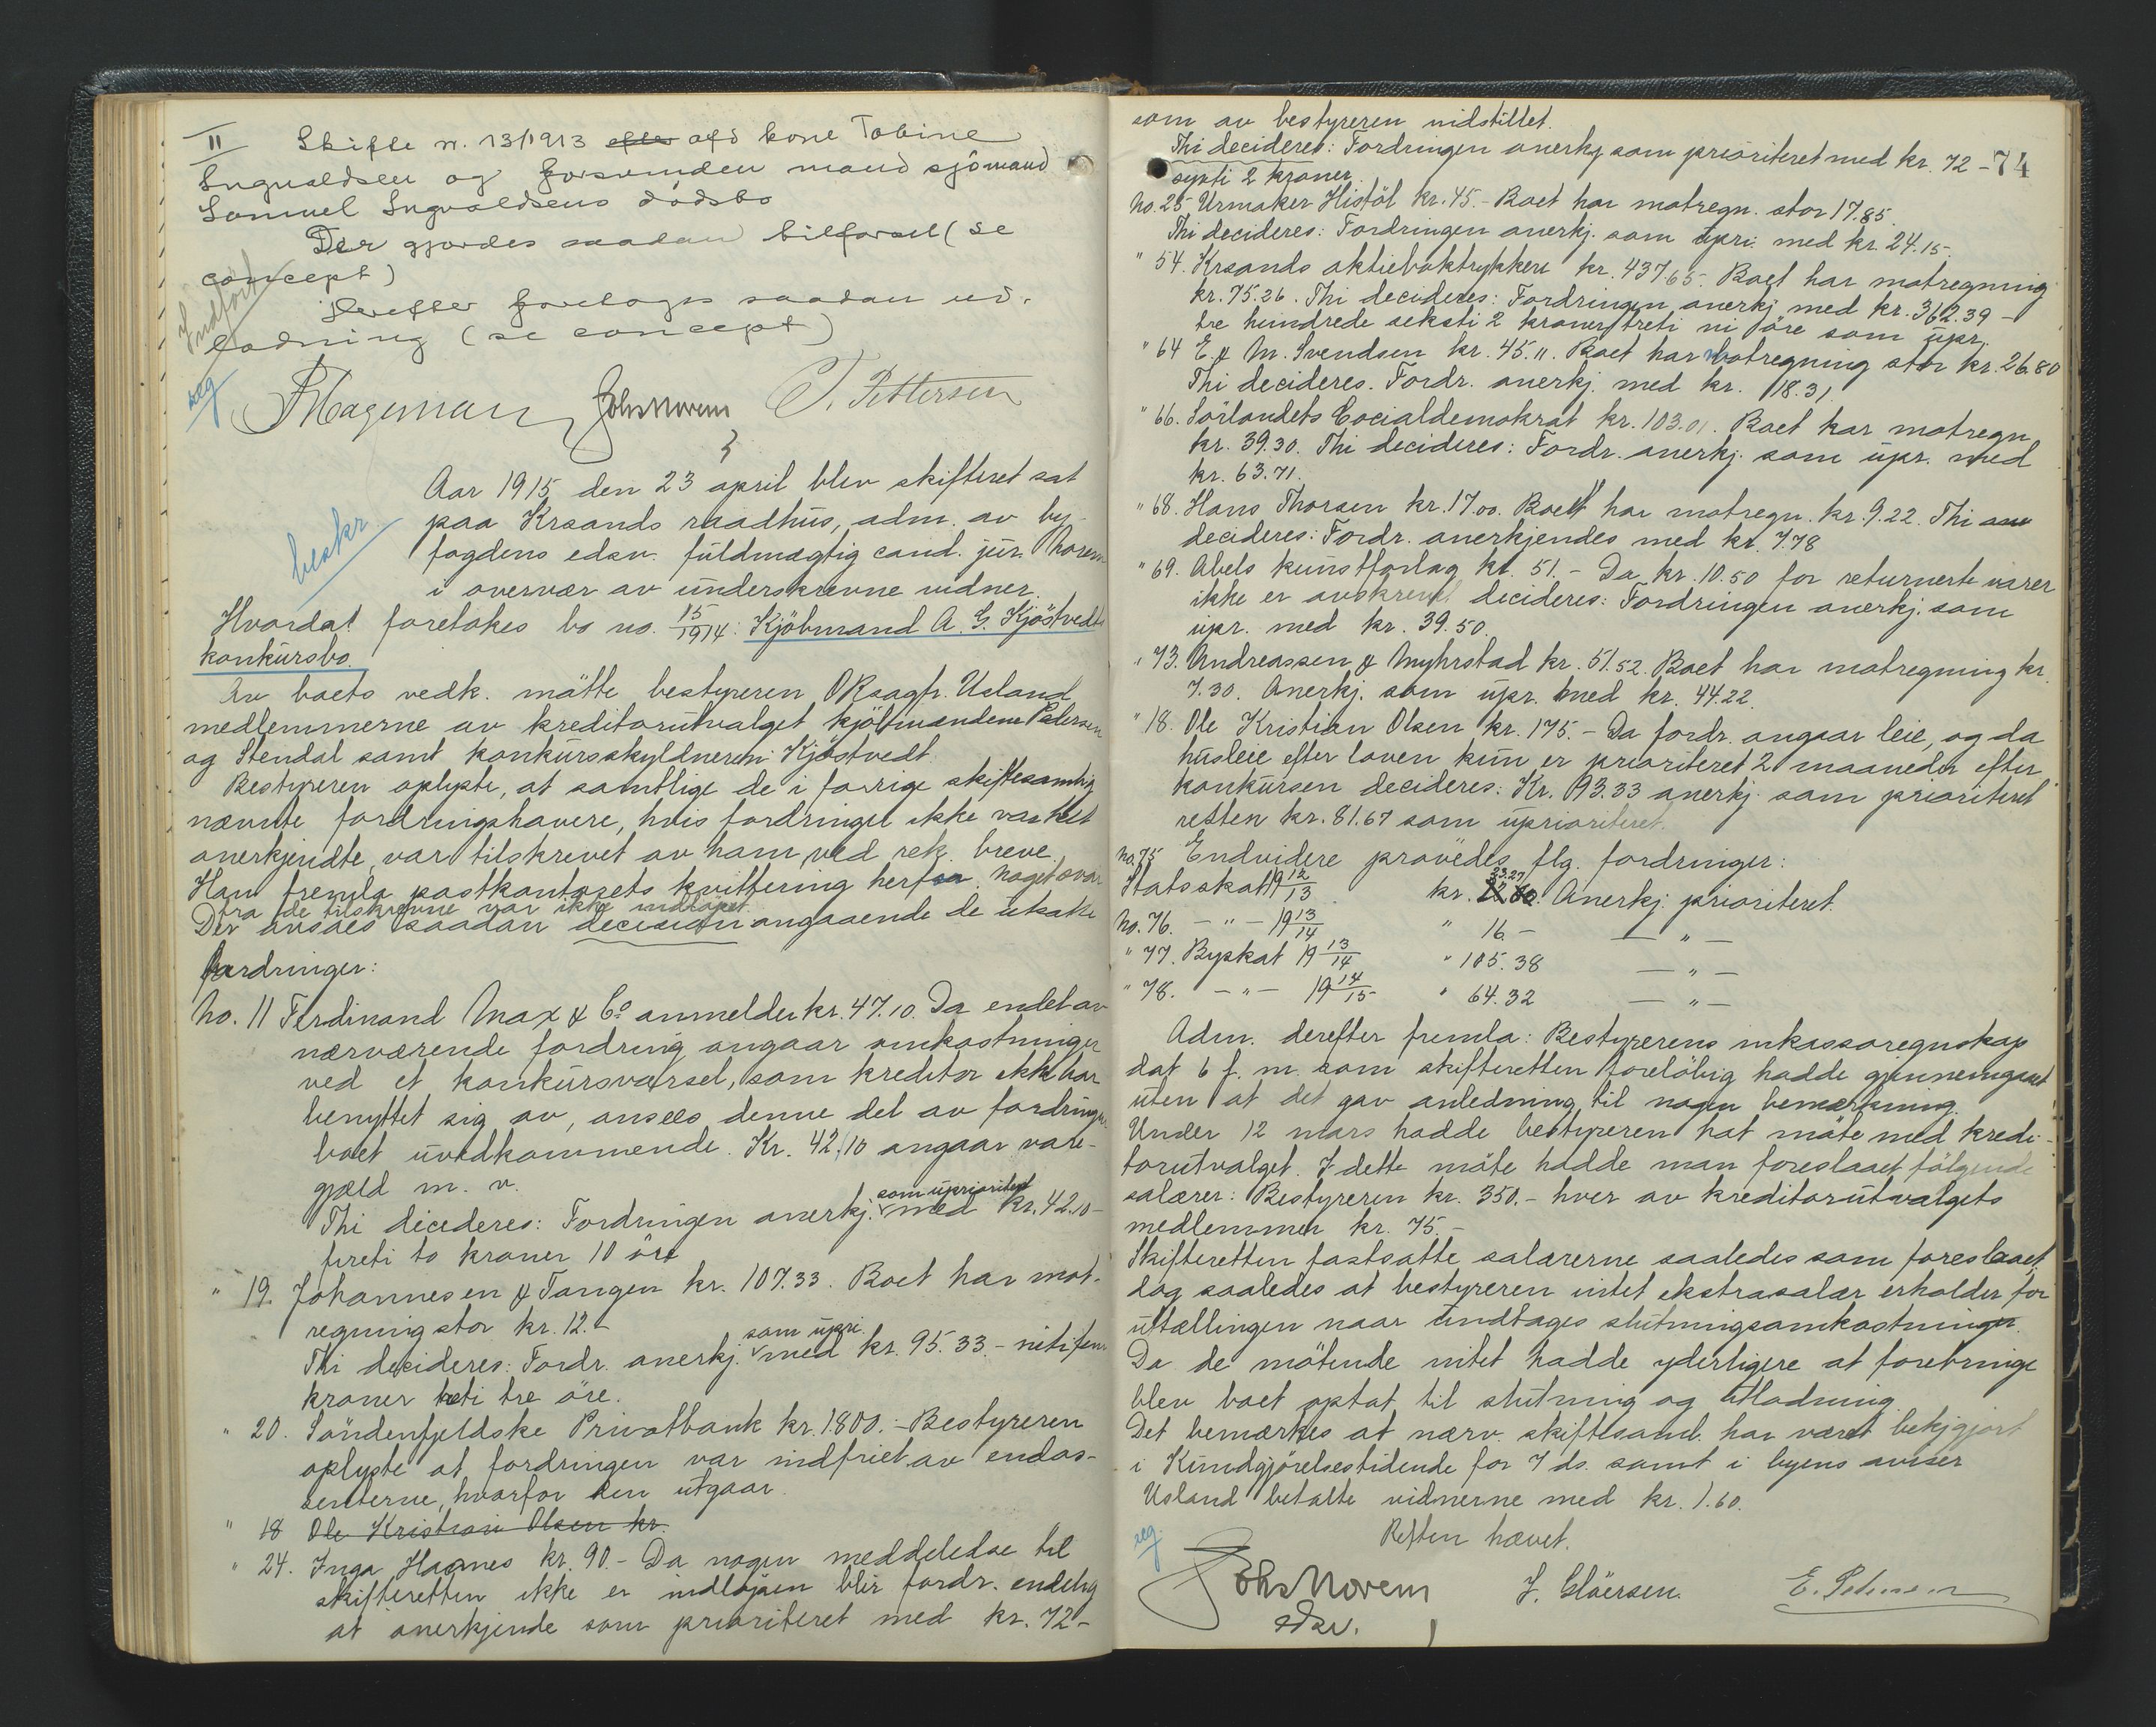 II Skifte nr. 13/1913 efter afd kone Tobine
Ingvaldsen og forsvunden mand sjömand
Samuel Ingvaldsens dödsbo
Der gjordes saadan tilförsel (se
concept)
Indfört
Derefter foretoges saadan ud-
lodning (se concept)
reg
Hageman Johs Norem T. Pettersen
Aar 1915 den 23 april blev skifteret sat
paa Krsands raadhus, adm. av by-
fogdens edsv. fuldmægtig cand. jur. Norem
beskr
i overvær av underskrevne vidner.
Hvorda! foretokes bo no. 15/1914: Kjöbmand A. G. Kjöstvedts
konkursbo.
Av boets vedk. mötte bestyreren ORsagf. Usland
medlemmerne av kreditorutvalget kjöbmændene Petersen
og Stendal samt konkursskyldneren Kjöstvedt.
Bestyreren oplyste, at samtlige de i forrige skiftesamling
nævnte fordringshavere, hvis fordringer ikke var helt
anerkjendte, var tilskrevet av ham ved rek. breve.
Han fremla postkontorets kvittering herfor. Noget svar
fra de tilskrevne var ikke indlöpet.
Der avsaes saadan decision angaaende de uksakte
fordringer:
No. 11 Ferdinand Max & Co anmelder kr. 47.10. Da endel av
nærværende fordring angaar omkostninger
ved et konkursvarsel, som kreditor ikke har
benyttet sig av, ansees denne del av fordringen
boet uvedkommende. Kr. 42.10 angaar vare-
gjæld m. v.
Thi decideres: Fordringen anerkj. som uprioritert med kr. 42.10-
firti to kroner 10 öre
" 19. Johannesen & Tangen kr. 107.33. Boet har mot-
regning stor kr. 12.-
Thi decideres: Fordr. anerkj. som upri. med kr. 95.33.- nitifem
kroner treti tre öre.
" 20. Söndenfjeldske Privatbank kr. 1800.- Bestyreren
oplyste at fordringen var indfriet av endos-
senterne, hvorfor den utgaar.
" 18 Ole Kristian Olsen kr.
" 24. Inga Haanes kr. 90.- Da nogen meddelelse til
skifteretten ikke er indlöpen blir fordr. endelig
at anerkjende som prioriteret med kr. 72-
som av bestyreren indstillet.
Thi decideres: Fordringen anerkj som prioriteret med kr. 72 -
74
sytti 2 kroner.
No. 25 Urmaker Histöl kr. 45.- Boet har motregn. stor 17.85.
Thi decideres: Fordringen anerkj. som upri. med kr. 24.15.
" 54. Krsands aktieboktrykkeri kr. 437.65. Boet har motregning
kr. 75.26. Thi decideres: Fordringen anerkj med kr. 362.39 -
tre hundrede seksti 2 kroner treti ni öre som upr.
" 64 E. & M. Svendsen kr. 45.11. Boet har motregning stor kr. 26.80
Thi decideres. Fordr. anerkj. med kr. 18.31.
" 66. Sörlandets Socialdemokrat kr. 103.01. Boet har motregn
kr. 39.30. Thi decideres: Fordr. anerkj. som upr. med
kr. 63.71.
" 68. Hans Thorsen kr. 17.00. Boet har motregn. kr. 9.22. Thi
decideres: Fordr. anerkjendes med kr. 7.78
" 69. Abels kunstforlag kr. 51.- Da kr. 10.50 for returnerte varer
ikke er avskrevet decideres: Fordringen anerkj. som
upr. med kr. 39.50.
" 73. Andreassen & Myhrstad kr. 51.52. Boet har motregning kr.
7.30. Anerkj. som upr. med kr. 44.22.
" 18. Ole Kristian Olsen kr. 175.- Da fordr. angaar leie, og da
husleie efter loven kun er prioriteret 2 maaneder efter
konkursen decideres: Kr. 93.33 anerkj. som prioriteret
resten kr. 81.67 som uprioriteret.
No. 75 Endvidere prövedes flg. fordringer:
Statsskat 1912/13 kr. 23.27 Anerkj. prioriteret.
No. 76. - " - 1913/14 " 16.- - " -
" 77. Byskat 1913/14 " 105.38 - " -
" 78. - " - 1914/15 " 64.32 - " -
Adm. derefter fremla: Bestyrerens inkassoregnskap
dat 6 f. m. som skifteretten forelöbig hadde gjennemgaaet
uten at det gav anledning til nogen bemerkning.
Under 12 mars hadde bestyreren hat möte med kredi-
torutvalget. I dette möte hadde man foreslaaet fölgende
salærer: Bestyreren kr. 350.- hver av kreditorutvalgets
medlemmer kr. 75.-
Skifteretten fastsatte salærerne saaledes som foreslaaet,
dog saaledes at bestyreren intet ekstrasalær erholder for
utællingen naar undtages slutningsomkostninger.
Da de mötende intet hadde yderligere at forebringe
blev boet optat til slutning og utlodning.
Det bemærkes at nærv. skiftesaml. har været bekjgjort
i Kundgjörelsestidende for 7 ds. samt i byens aviser
Usland betalte vidnerne med kr. 1.60.
Retten hævet.
reg.
Johs Norem J. Clöersen. E. Pedersen
edsv.